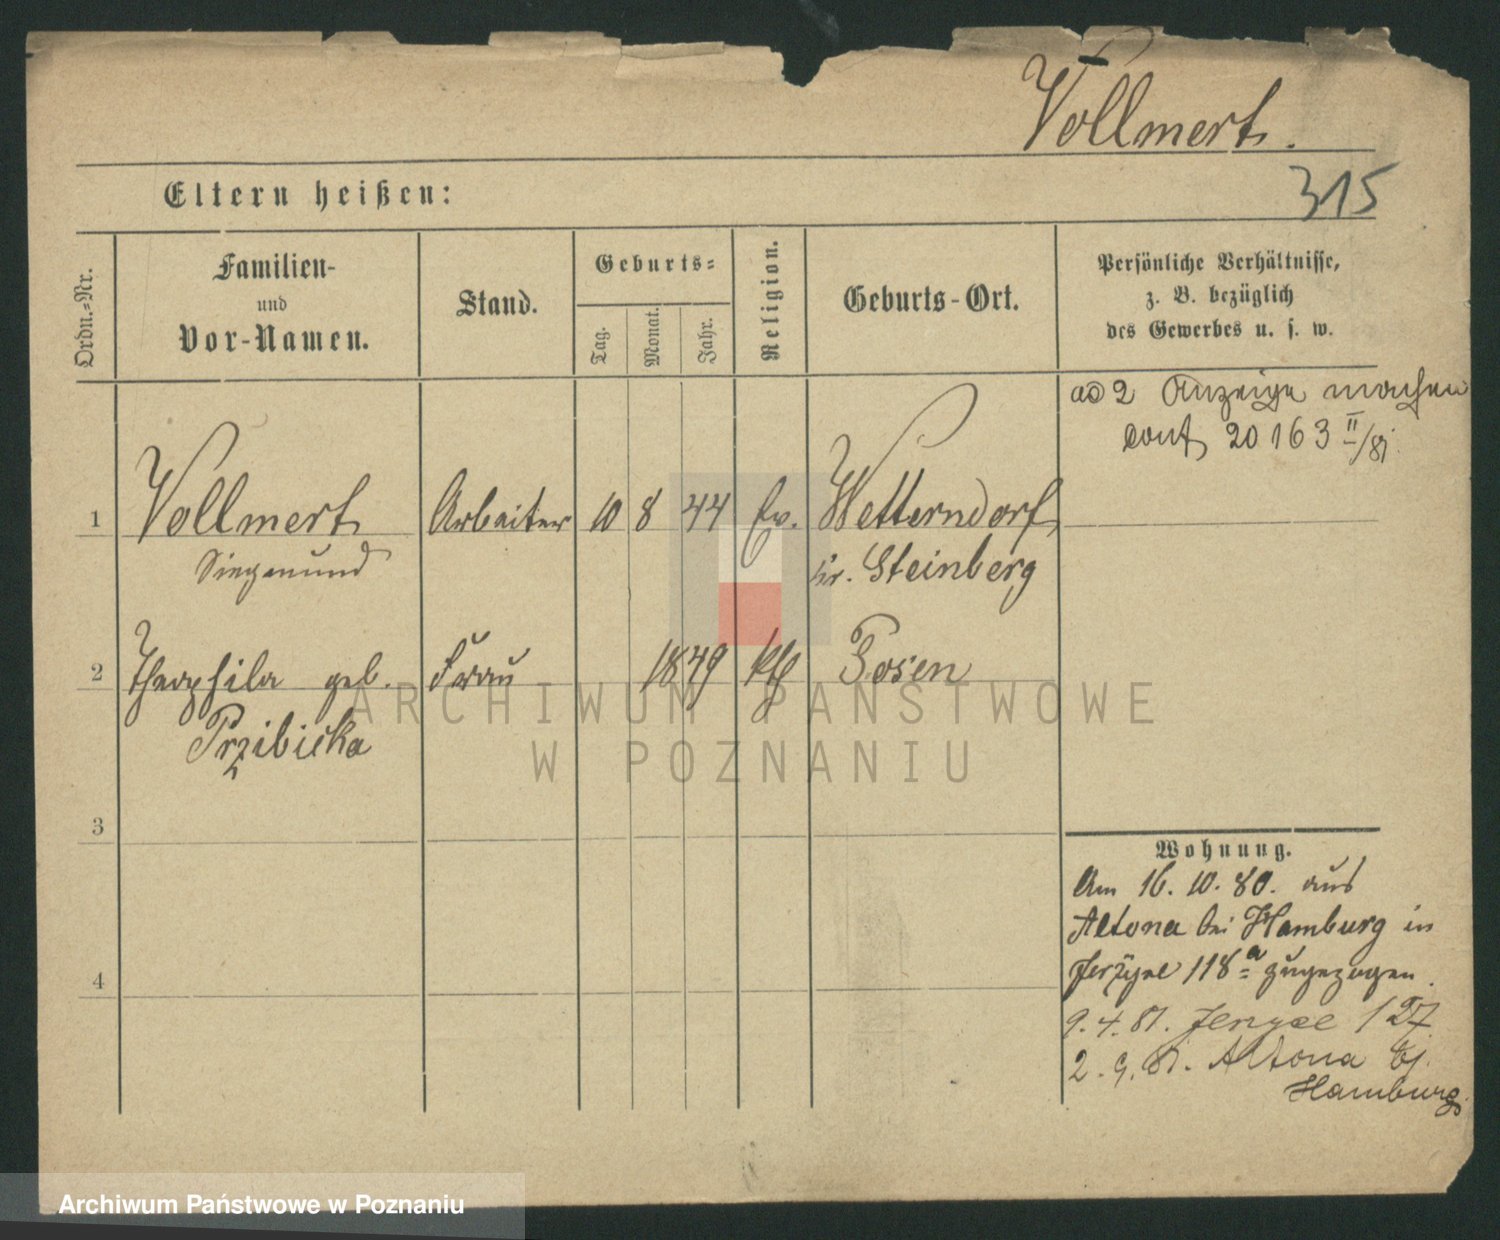 Vollmert.
315
Eltern heißen:
Ordn.-Nr.
Familien-
und
Vor-Namen.
Stand.
Geburts-
Tag.
Monat.
Jahr.
Religion.
Geburts-Ort.
Persönliche Verhältnisse,
z. B. bezüglich
des Gewerbes u. s. w.
ad 2 Anzeige machen
conf 20163 II/81.
1 Vollmert Arbeiter 10 8 44 Ev. Wetterndorf
Siegmund kr. Steinberg
2 Theophila geb. Frau 1849 kth Posen
Przibicka
3
4
Wohnung.
Am 16. 10. 80. aus
Altona bei Hamburg in
Jerzyce 118a zugezogen.
9. 4. 81. Jerzyce 127
2. 9. 81. Altona b/
Hamburg.
ARCHIWUM PAŃSTWOWE
W POZNANIU
Archiwum Państwowe w Poznaniu